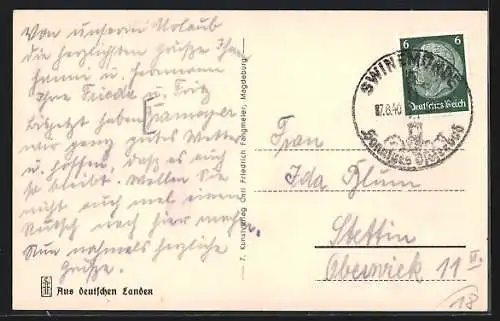 Von unserm Urlaub
die herzlichsten Grüße Ihr
Hanni u. Hermann
Ihre Frieda u. Fritz
Bis jetzt haben
wir ganz gutes Wetter
u. hoffen, daß es auch
so bleibt. Wollen Sie
nicht auch mal einen
Rutsch nach hier machen.
Nun nochmals herzliche
Grüße.
Aus deutschen Landen
7. Kunstverlag Carl Friedrich Fangmeier, Magdeburg
6 6
Deutsches Reich
SWINEMÜNDE
17.8.40
Frau
Ida Blum
Stettin
Oberwiek 11 II.
18